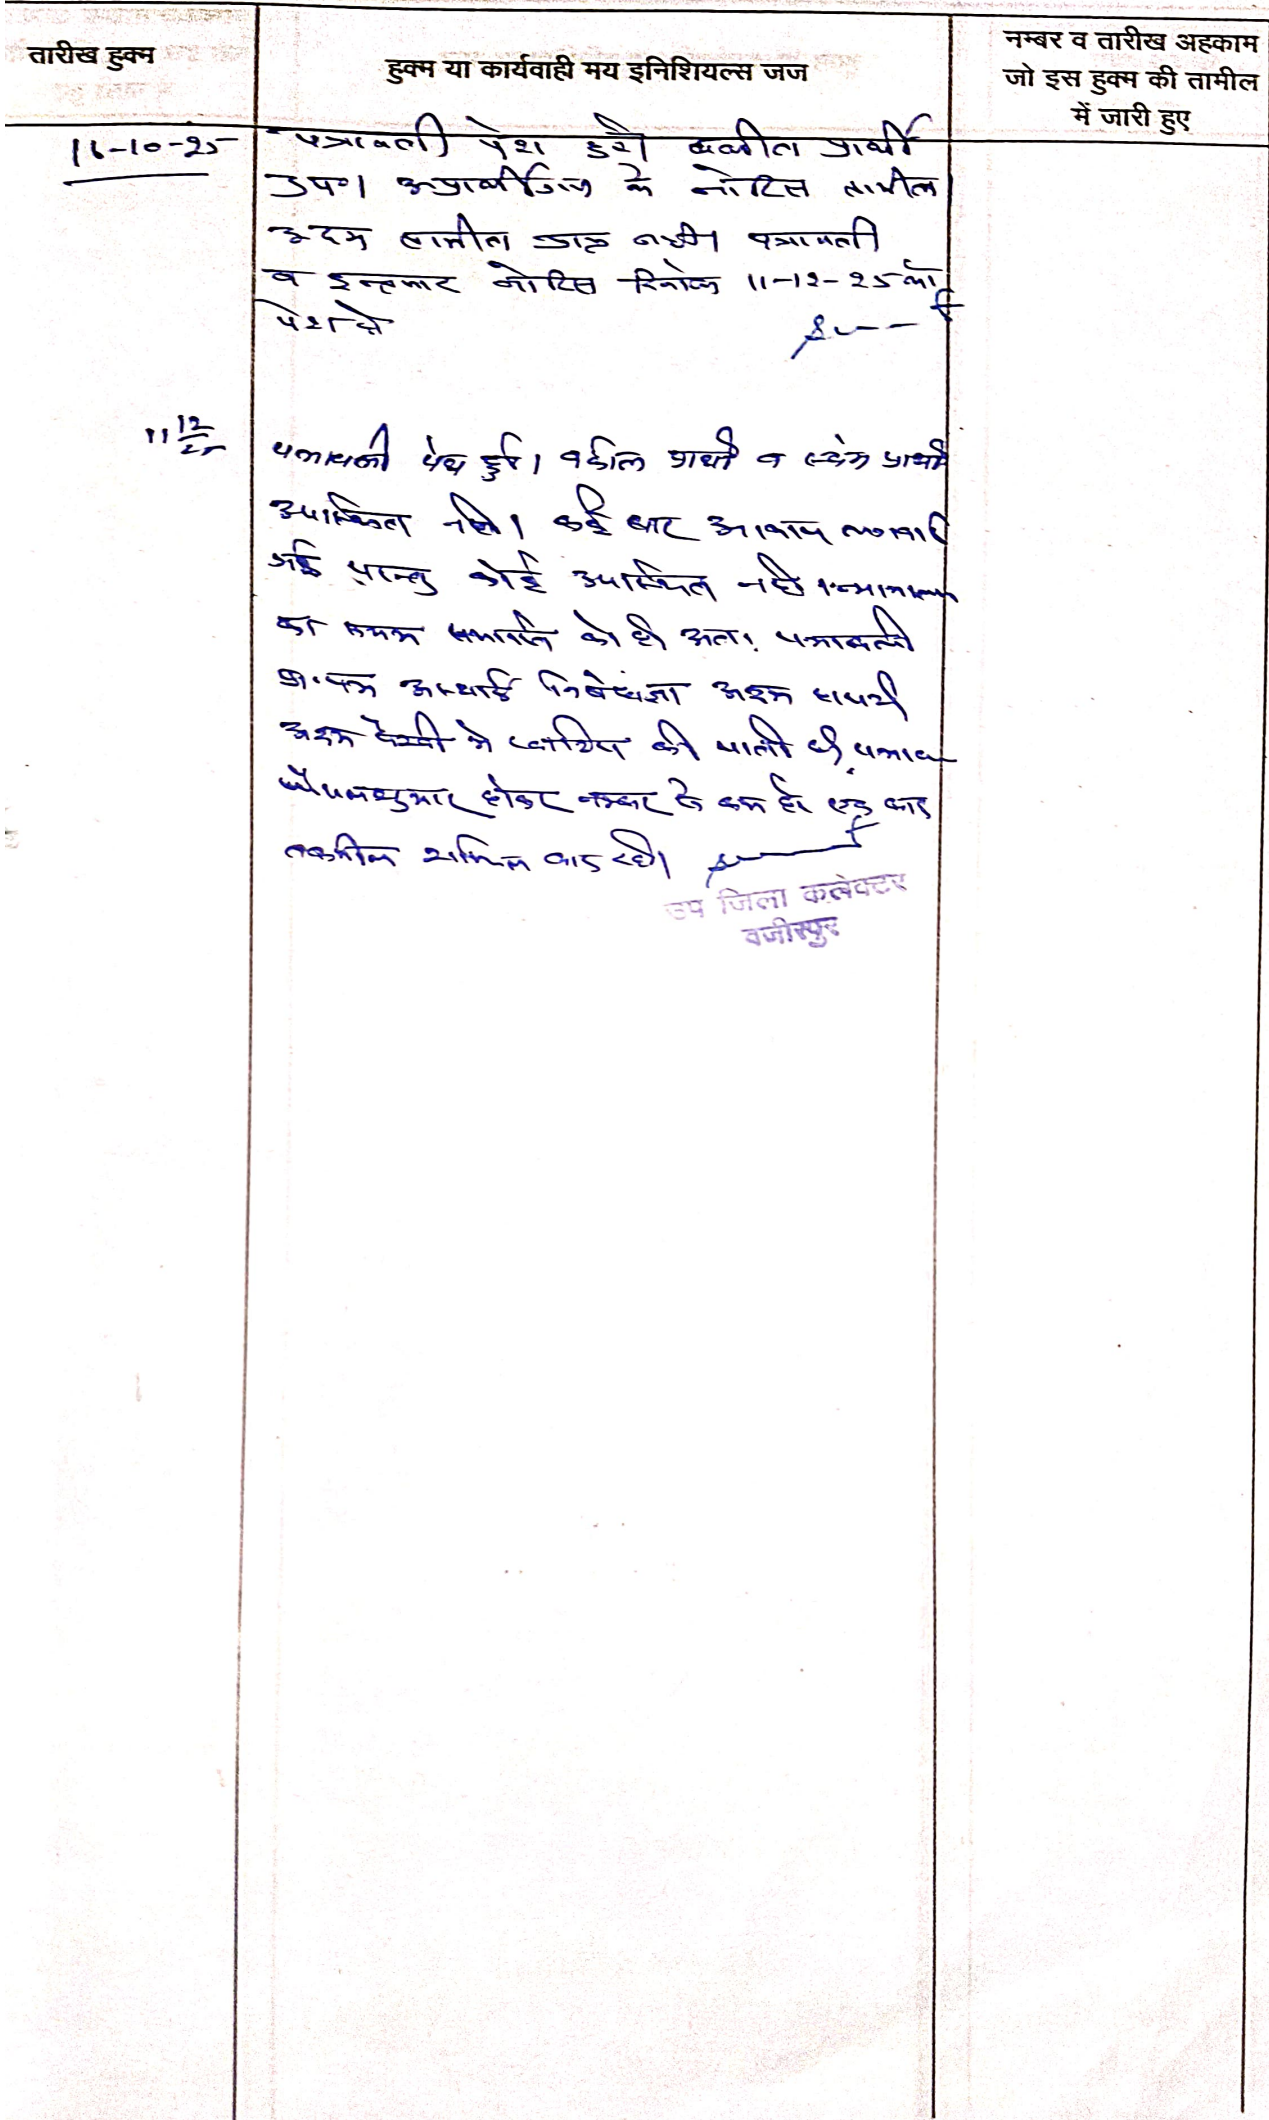 तारीख हुक्म
हुक्म या कार्यवाही मय इनिशियल्स जज
नम्बर व तारीख अहकाम
जो इस हुक्म की तामील
में जारी हुए
16-10-25
पत्रावली पेश हुई। वकील प्रार्थी
उप०। अप्रार्थीगण के नोटिस तामील
अदम तामील प्राप्त नहीं। पत्रावली
व इन्तजार नोटिस दिनांक 11-12-25 को
पेश हो
11/12/25
पत्रावली पेश हुई। वकील प्रार्थी व स्वयं प्रार्थी
उपस्थित नहीं। कई बार आवाज लगवाई
गई परन्तु कोई उपस्थित नहीं। न्यायालय
का समय समाप्ति को है। अतः पत्रावली
अस्थाई निषेधाज्ञा अदम हाजरी
अदम पैरवी में खारिज की जाती है। पत्रावली
फैसलशुमार होकर नम्बर से कम हो
तकमील शामिल रहे।
उप जिला कलेक्टर
वजीरपुर